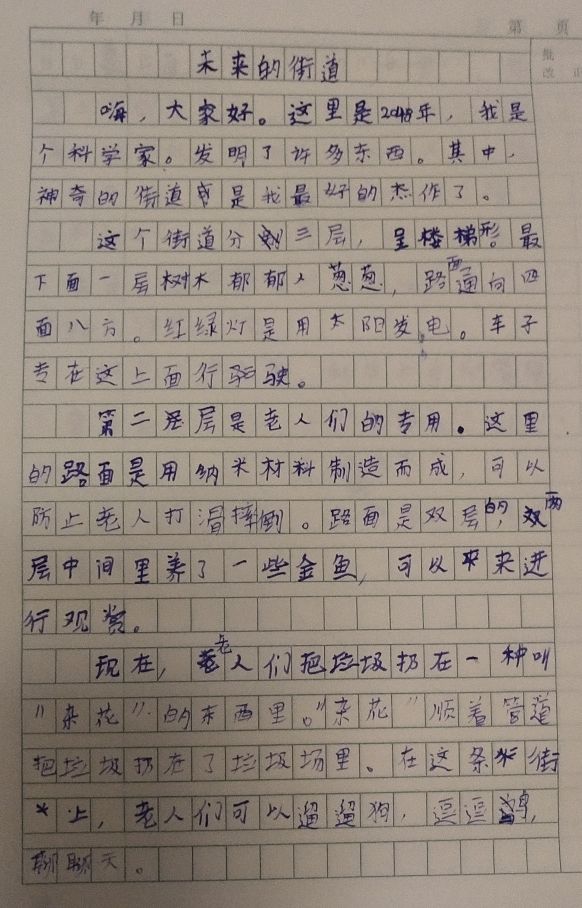 年 月 日 第 页
批
改
未来的街道
嗨，大家好。这里是2048年，我是
个科学家。发明了许多东西。其中，
神奇的街道是我最好的杰作了。
这个街道分三层，呈楼梯形。最
下面一层树木郁郁人葱葱，路面通向四
面八方。红绿灯是用太阳发电。车子
专在这上面行驶。
第二层是老人们的专用。这里
的路面是用纳米材料制造而成，可以
防止老人打滑摔倒。路面是双层的，两
层中间里养了一些金鱼，可以来进
行观赏。
现在，老人们把垃圾扔在一种叫
"杂花"的东西里。"杂花"顺着管道
把垃圾扔在了垃圾场里。在这条街
上，老人们可以遛遛狗，逗逗鸟，
聊聊天。